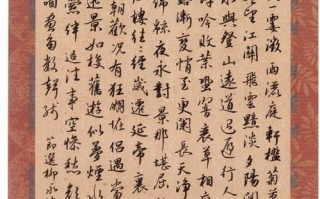 霎微雨灑庭軒檻菊
望江關飛雲黯淡夕陽閒
水與登山遠道迢遞行人
蟬吟敗葉蛩響衰草相應
露漸變悄悄至更闌長天淨
綿綿夜永對景那堪屈
樓往往經歲遷延帝裏
朝歡況有狂朋怪侶遇當
迅景如梭舊遊似夢煙水
縈絆追往事空慘愁顏
畫角數聲殘
節選柳永